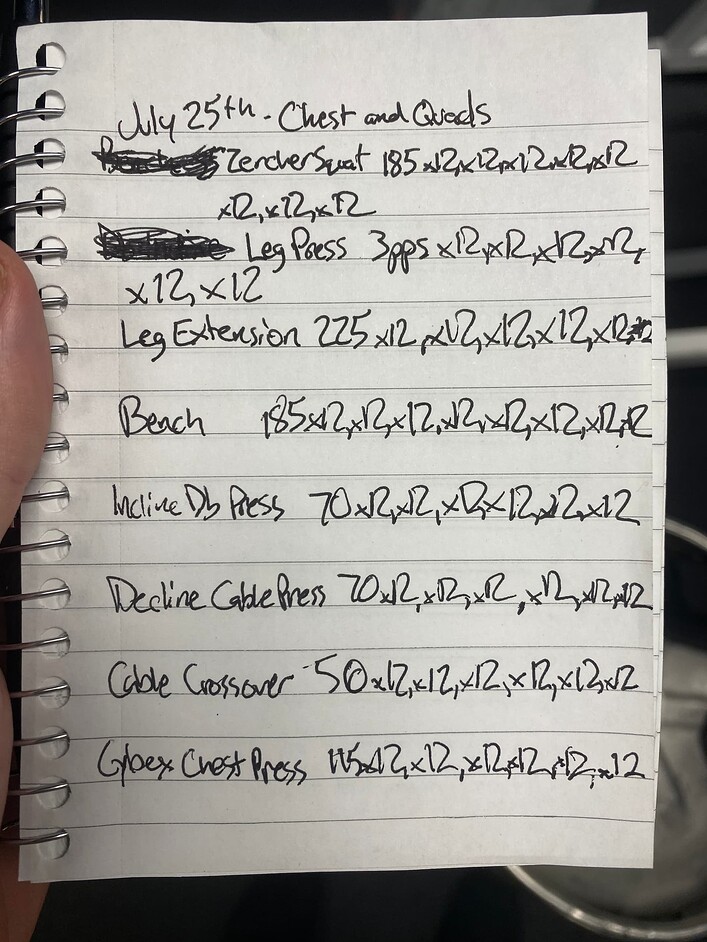 July 25th - Chest and Quads
Zercher Squat 185x12,x12,x12,x12,x12
x12,x12,x12
Leg Press 3pps x12,x12,x12,x12,
x12,x12
Leg Extension 225x12,x12,x12,x12,x12,x12
Bench 185x12,x12,x12,x12,x12,x12,x12,x12
Incline Db Press 70x12,x12,x12,x12,x12,x12
Decline Cable Press 70x12,x12,x12,x12,x12,x12
Cable Crossover 50x12,x12,x12,x12,x12,x12
Cybex Chest Press 115x12,x12,x12,x12,x12,x12